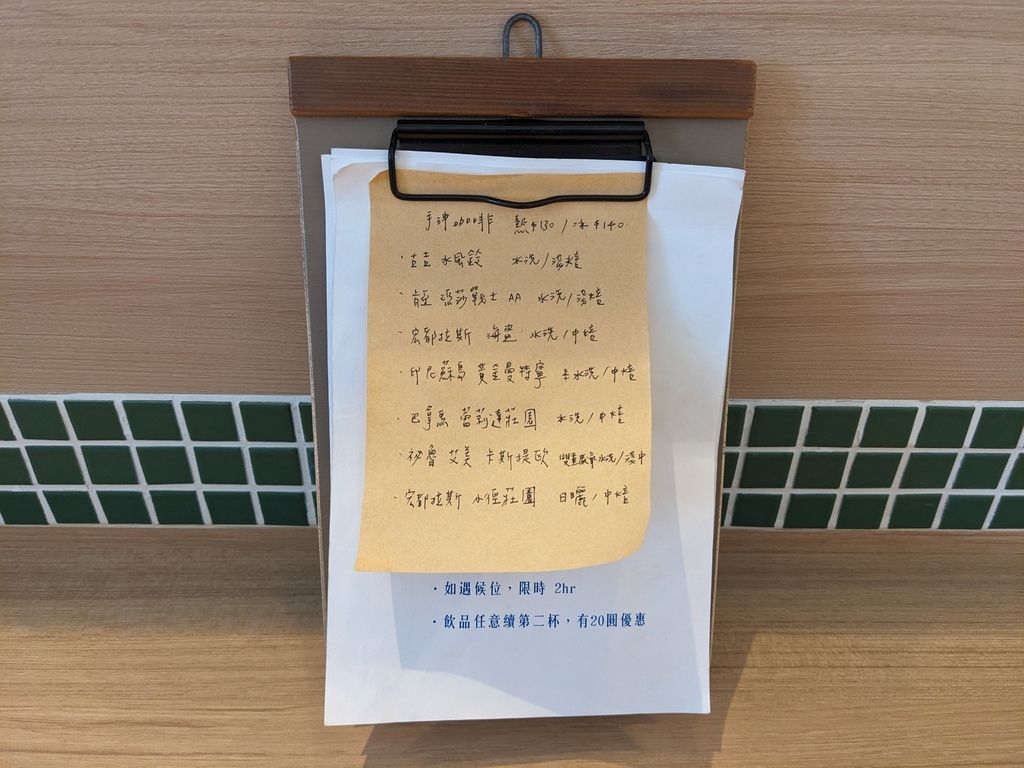 手沖咖啡 熱$130 / 冰$140
· 水風鈴 水洗/淺焙
· 肯亞 琉莎戰士 AA 水洗/淺焙
· 宏都拉斯 海盜 水洗/中焙
· 印尼蘇島 黃金曼特寧 半水洗/中焙
· 巴拿馬 蕾莉達莊園 水洗/中焙
· 祕魯 艾美 卡斯提歐 雙重厭氧水洗/淺中
· 宏都拉斯 水徑莊園 日曬/中焙
· 如遇候位,限時 2hr
· 飲品任意續第二杯,有20圓優惠